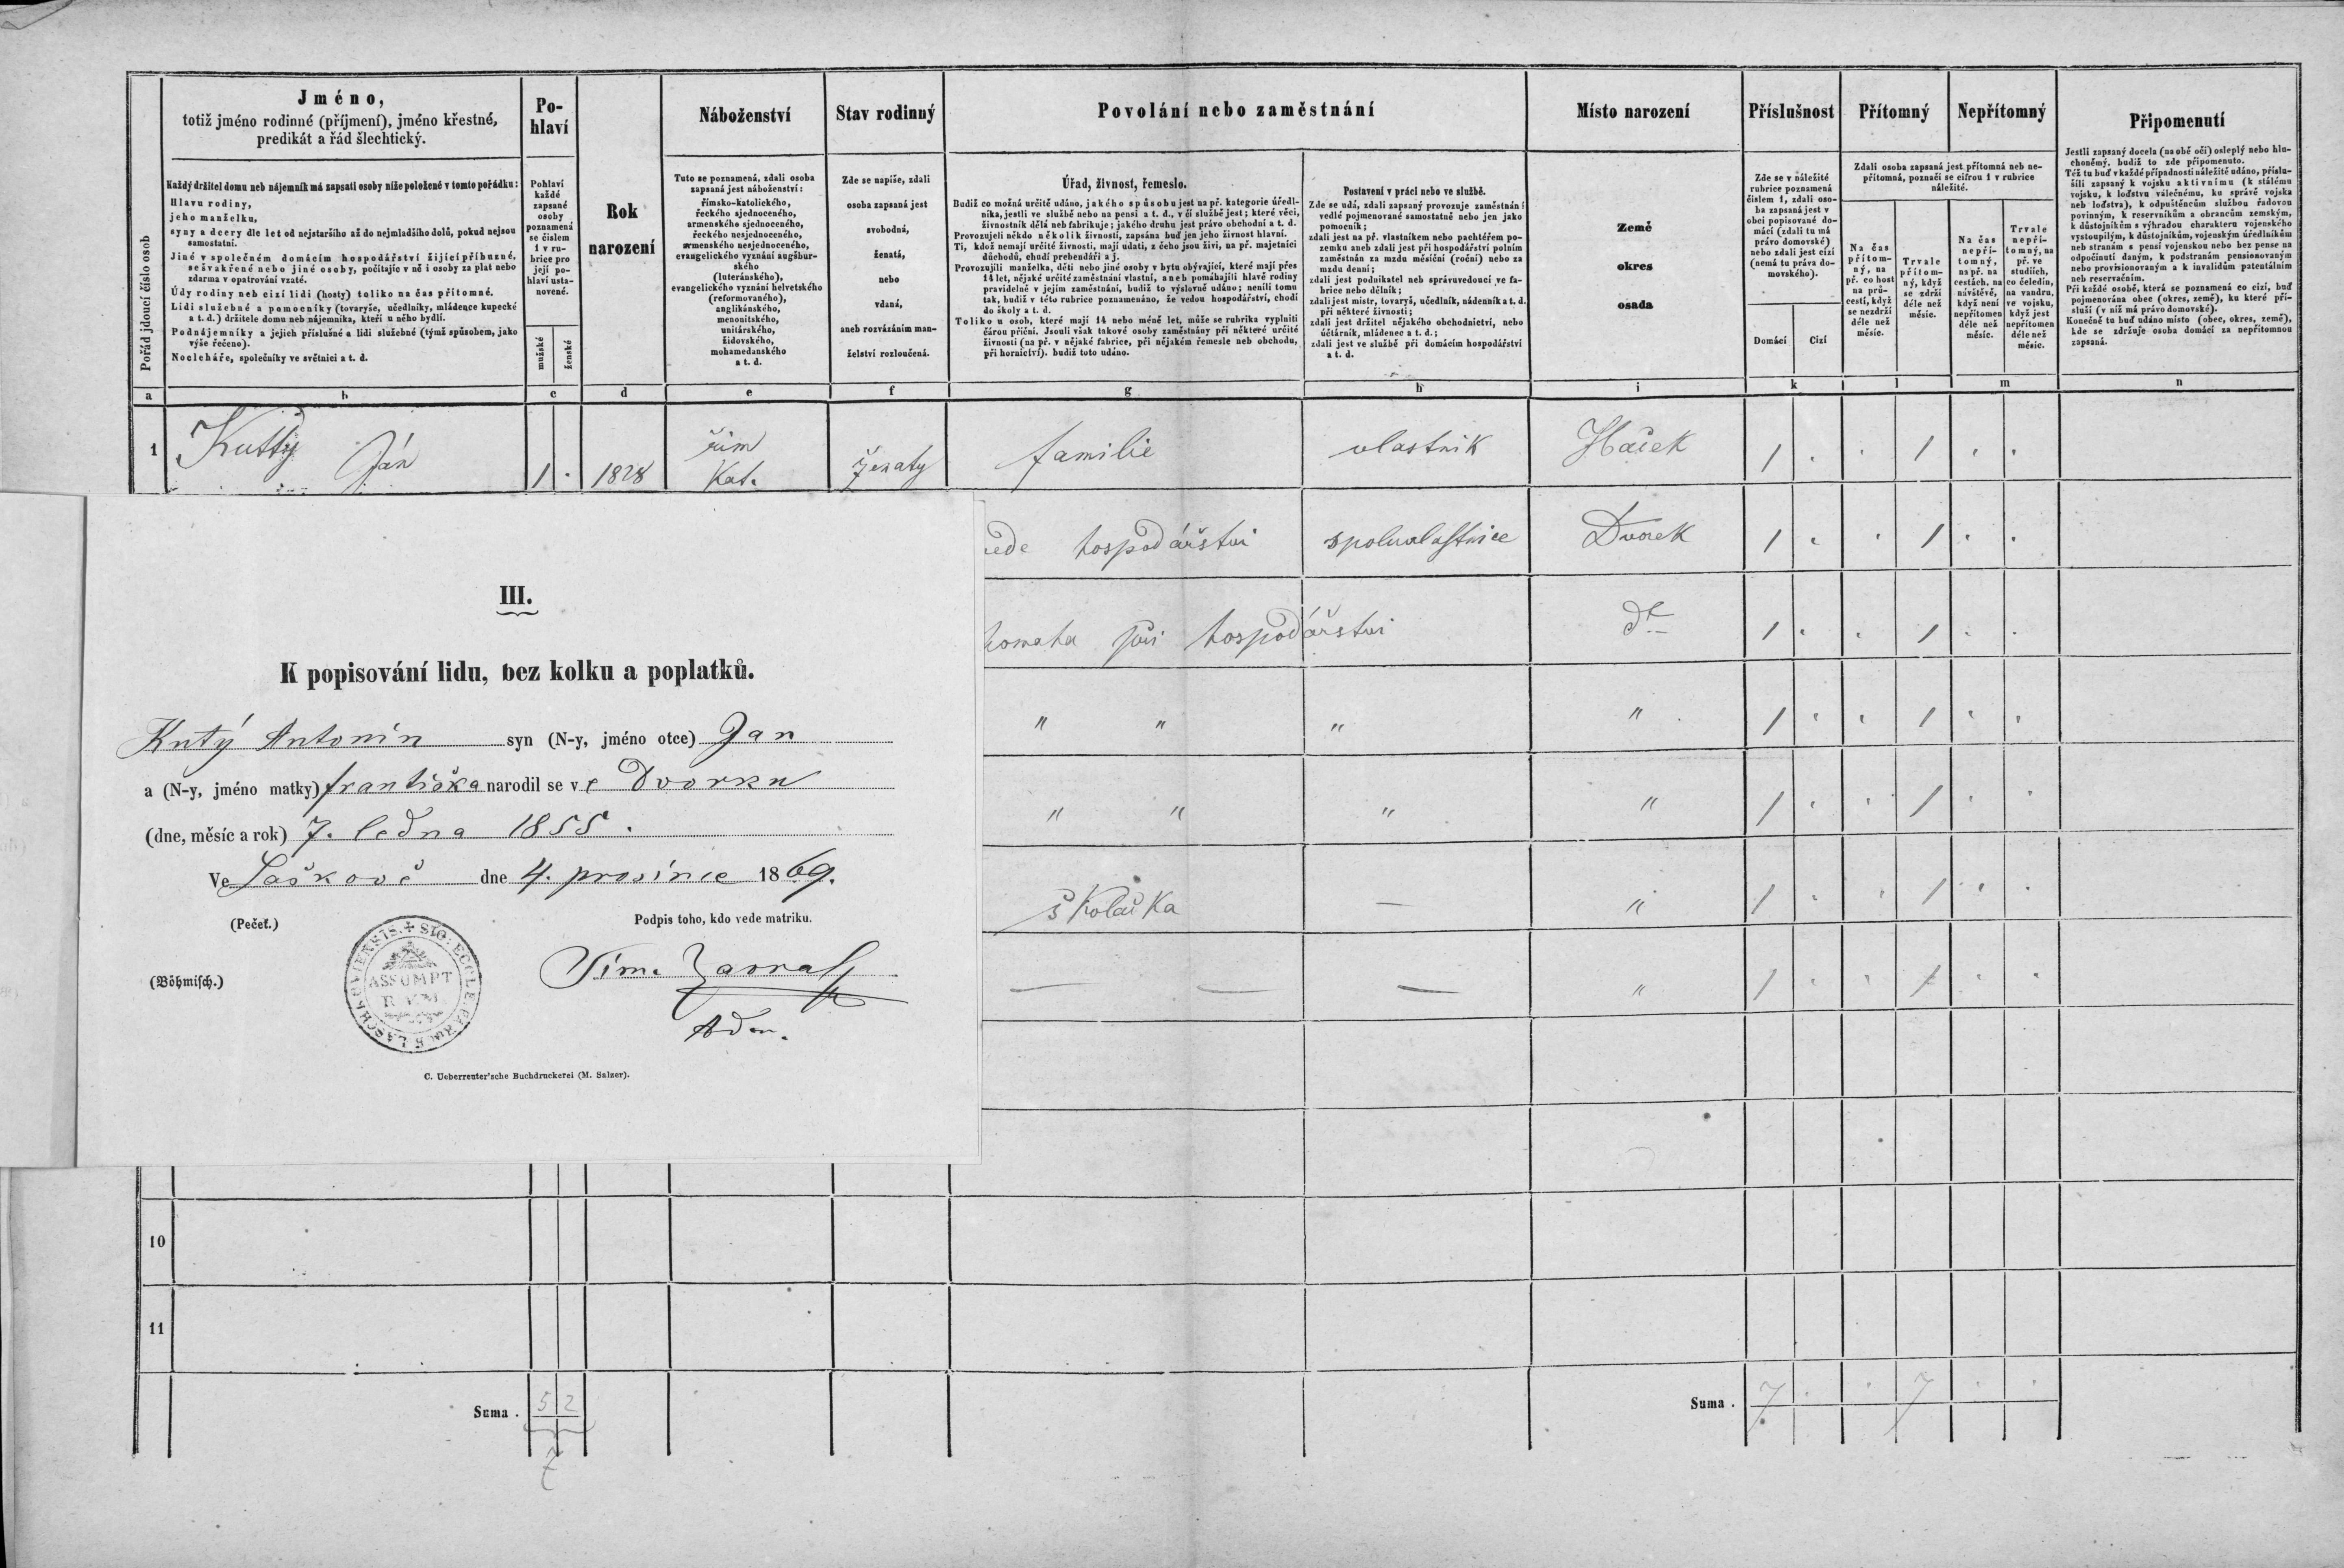 Jméno,
totiž jméno rodinné (příjmení), jméno křestné,
predikát a řád šlechtický.
Po-
hlaví
Rok
narození
Náboženství
Stav rodinný
Povolání nebo zaměstnání
Místo narození
Příslušnost
Přítomný
Nepřítomný
Připomenutí
Pořád jdoucí číslo osob
Každý držitel domu neb nájemník má zapsati osoby níže položené v tomto pořádku:
Hlavu rodiny,
jeho manželku,
syny a dcery dle let od nejstaršího až do nejmladšího dolů, pokud nejsou
samostatní.
Jiné v společném domácím hospodářství žijící příbuzné,
sešvakřené nebo jiné osoby, počítajíc v ně i osoby za plat nebo
zdarma v opatrování vzaté.
Údy rodiny neb cizí lidi (hosty) toliko na čas přítomné.
Lidi služebné a pomocníky (tovaryše, učedlníky, mládence kupecké
a t. d.) držitele domu neb nájemníka, kteří u něho bydlí.
Podnájemníky a jejich příslušné a lidi služebné (týmž spůsobem, jako
výše řečeno).
Nocleháře, společníky ve světnici a t. d.
Pohlaví
každé
zapsané
osoby
poznamená
se číslem
1 v ru-
brice pro
její po-
hlaví usta-
novené.
mužské
ženské
Tuto se poznamená, zdali osoba
zapsaná jest náboženství:
římsko-katolického,
řeckého sjednoceného,
armenského sjednoceného,
řeckého nesjednoceného,
armenského nesjednoceného,
evangelického vyznání augšbur-
ského
(luteránského),
evangelického vyznání helvetského
(reformovaného),
anglikánského,
menonitského,
unitářského,
židovského,
mohamedanského
a t. d.
Zde se napíše, zdali
osoba zapsaná jest
svobodná,
ženatá,
nebo
vdaná,
aneb rozvázáním man-
želství rozloučená.
Úřad, živnost, řemeslo.
Budiž co možná určitě udáno, jakého spůsobu jest na př. kategorie úředl-
níka, jestli ve službě nebo na pensi a t. d., v čí službě jest; které věci,
živnostník dělá neb fabrikuje; jakého druhu jest právo obchodní a t. d.
Provozujeli někdo několik živností, zapsána buď jen jeho živnost hlavní.
Ti, kdož nemají určité živnosti, mají udati, z čeho jsou živi, na př. majetníci
důchodů, chudí prebendáři a j.
Provozujíli manželka, děti nebo jiné osoby v bytu obývající, které mají přes
14 let, nějaké určité zaměstnání vlastní, aneb pomáhajíli hlavě rodiny
pravidelně v jejím zaměstnání, budiž to výslovně udáno; neníli tomu
tak, budiž v této rubrice poznamenáno, že vedou hospodářství, chodí
do školy a t. d.
Toliko u osob, které mají 14 nebo méně let, může se rubrika vyplniti
čárou příční. Jsouli však takové osoby zaměstnány při některé určité
živnosti (na př. v nějaké fabrice, při nějakém řemesle neb obchodu,
při hornictví). budiž toto udáno.
Postavení v práci nebo ve službě.
Zde se udá, zdali zapsaný provozuje zaměstnání
vedlé pojmenované samostatně nebo jen jako
pomocník;
zdali jest na př. vlastníkem nebo pachtéřem po-
zemku aneb zdali jest při hospodářství polním
zaměstnán za mzdu měsíční (roční) nebo za
mzdu denní;
zdali jest podnikatel neb správuvedoucí ve fa-
brice nebo dělník;
zdali jest mistr, tovaryš, učedlník, nádenník a t. d.
při některé živnosti;
zdali jest držitel nějakého obchodnictví, nebo
účtárník, mládenec a t. d.;
zdali jest ve službě při domácím hospodářství
a t. d.
Země
okres
osada
Zde se v náležité
rubrice poznamená
číslem 1, zdali oso-
ba zapsaná jest v
obci popisované do-
mácí (zdali tu má
právo domovské)
nebo zdali jest cizí
(nemá tu práva do-
movského).
Domácí
Cizí
Zdali osoba zapsaná jest přítomná neb ne-
přítomná, poznačí se cifrou 1 v rubrice
náležité.
Na čas
přítom-
ný, na
př. co host
na prů-
cestí, když
se nezdrží
déle než
měsíc.
Trvale
přítom-
ný, když
se zdrží
déle než
měsíc.
Na čas
nepří-
tomný,
na př. na
cestách, na
návštěvě,
když není
nepřítomen
déle než
měsíc.
Trvale
nepří-
tomný, na
př. ve
studiích,
co čeledín,
na vandru,
ve vojsku,
když jest
nepřítomen
déle než
měsíc.
Jestli zapsaný docela (na obě oči) osleplý nebo hlu-
choněmý. budiž to zde připomenuto.
Též tu buď v každé případnosti náležitě udáno, příslu-
šíli zapsaný k vojsku aktivnímu (k stálému
vojsku, k loďstvu válečnému, ku správě vojska
neb loďstva), k odpuštěncům službou řadovou
povinným, k reservníkům a obrancům zemským,
k důstojníkům s výhradou charakteru vojenského
vystoupilým, k důstojníkům, vojenským úředlníkům
neb stranám s pensí vojenskou nebo bez pense na
odpočinutí daným, k podstranám pensionovaným
nebo provisionovaným a k invalidům patentálním
neb reservačním.
Při každé osobě, která se poznamená co cizí, buď
pojmenována obec (okres, země), ku které pří-
sluší (v níž má právo domovské).
Konečně tu buď udáno místo (obec, okres, země),
kde se zdržuje osoba domácí za nepřítomnou
zapsaná.
a b c d e f g h i k l m n
1 Kuttý Ján 1 . 1828 řím Kat. ženatý familie vlastnik Haček 1 . . 1 . .
vede hospodářstvi spoluvlastnice Dvorek 1 . . 1 . .
pomaha při hospodářstvi dt 1 . . 1 . .
" " " " 1 . . 1 . .
" " " " 1 . . 1 . .
školačka — " 1 . . 1 . .
— — — " 1 . . 1 . .
III.
K popisování lidu, bez kolku a poplatků.
Kutý Antonín syn (N-y, jméno otce) Jan
a (N-y, jméno matky) františka narodil se ve Dvorku
(dne, měsíc a rok) 7. ledna 1855.
Ve Laškově dne 4. prosince 1869.
(Pečeť.)
Podpis toho, kdo vede matriku.
ASSUMPT
B.V.M.
(Böhmisch.)
Adm.
C. Ueberreuter'sche Buchdruckerei (M. Salzer).
10
11
Suma . 5 2 Suma . 7 . . 7 . .
7